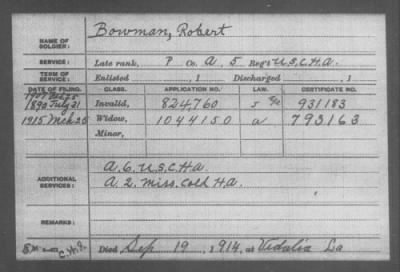 NAME OF SOLDIER: Bowman, Robert
SERVICE: Late rank, P Co. A, 5 Reg't U.S.C.H.A.
TERM OF SERVICE: Enlisted , 1 Discharged , 1
DATE OF FILING. CLASS. APPLICATION NO. LAW. CERTIFICATE NO.
1890 July 21 Invalid, 824,760 931183
1915 Mch 25 Widow, 1044150 a 793163
Minor,
ADDITIONAL SERVICES: A. 6. U.S.C.H.A.
A. 2. Miss. Cold H.A.
REMARKS:
Died Sep 19, 1914, at Vidalia La